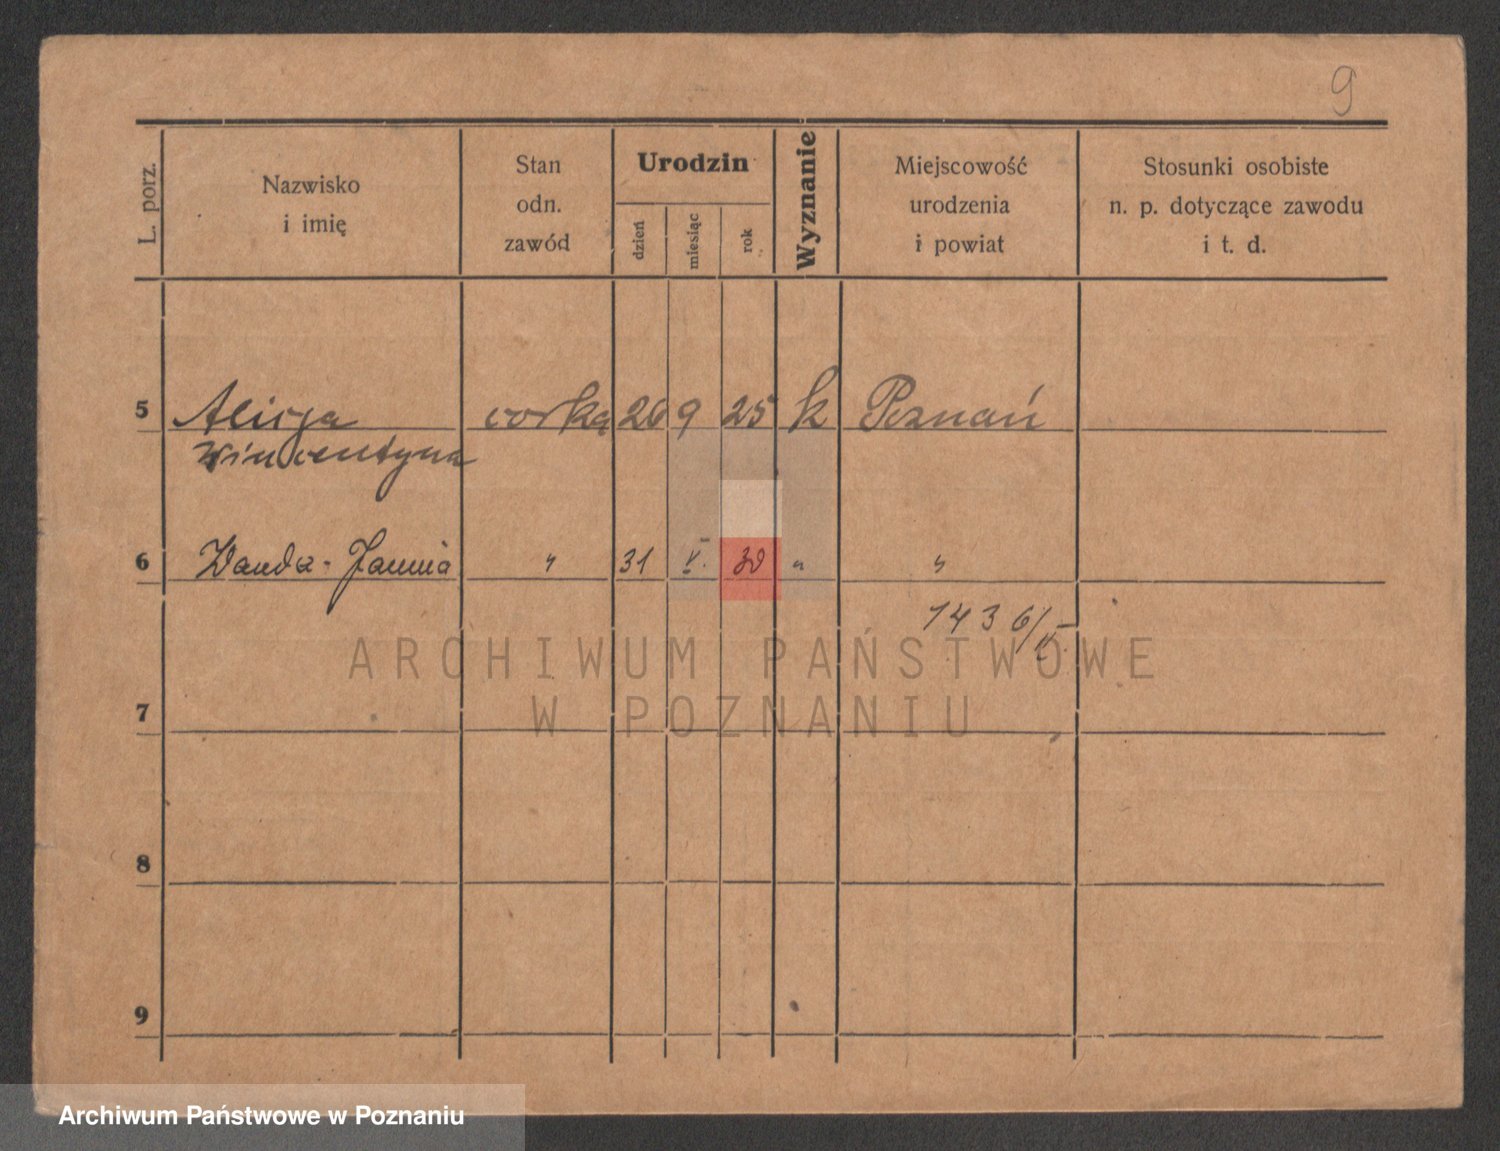 9
L. porz.
Nazwisko
i imię
Stan
odn.
zawód
Urodzin
dzień
miesiąc
rok
Wyznanie
Miejscowość
urodzenia
i powiat
Stosunki osobiste
n. p. dotyczące zawodu
i t. d.
5 Alicja corka 26 9 25 k Poznań
Wincentyna
6 Wanda-Janina " 31 V. 30 " "
1436/V
ARCHIWUM PAŃSTWOWE
W POZNANIU
7
8
9
Archiwum Państwowe w Poznaniu